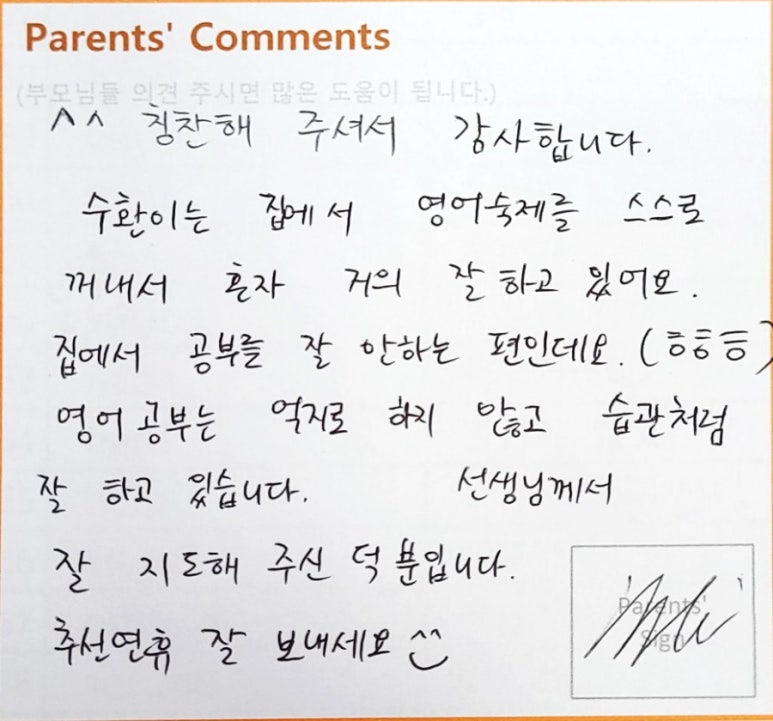 Parents' Comments
(부모님들 의견 주시면 많은 도움이 됩니다.)
^^ 칭찬해 주셔서 감사합니다.
수환이는 집에서 영어숙제를 스스로
꺼내서 혼자 거의 잘 하고 있어요.
집에서 공부를 잘 안하는 편인데요. (ㅎㅎㅎ)
영어 공부는 억지로 하지 않고 습관처럼
잘 하고 있습니다. 선생님께서
잘 지도해 주신 덕분입니다.
추선연휴 잘 보내세요 ^^
Parents'
Sign